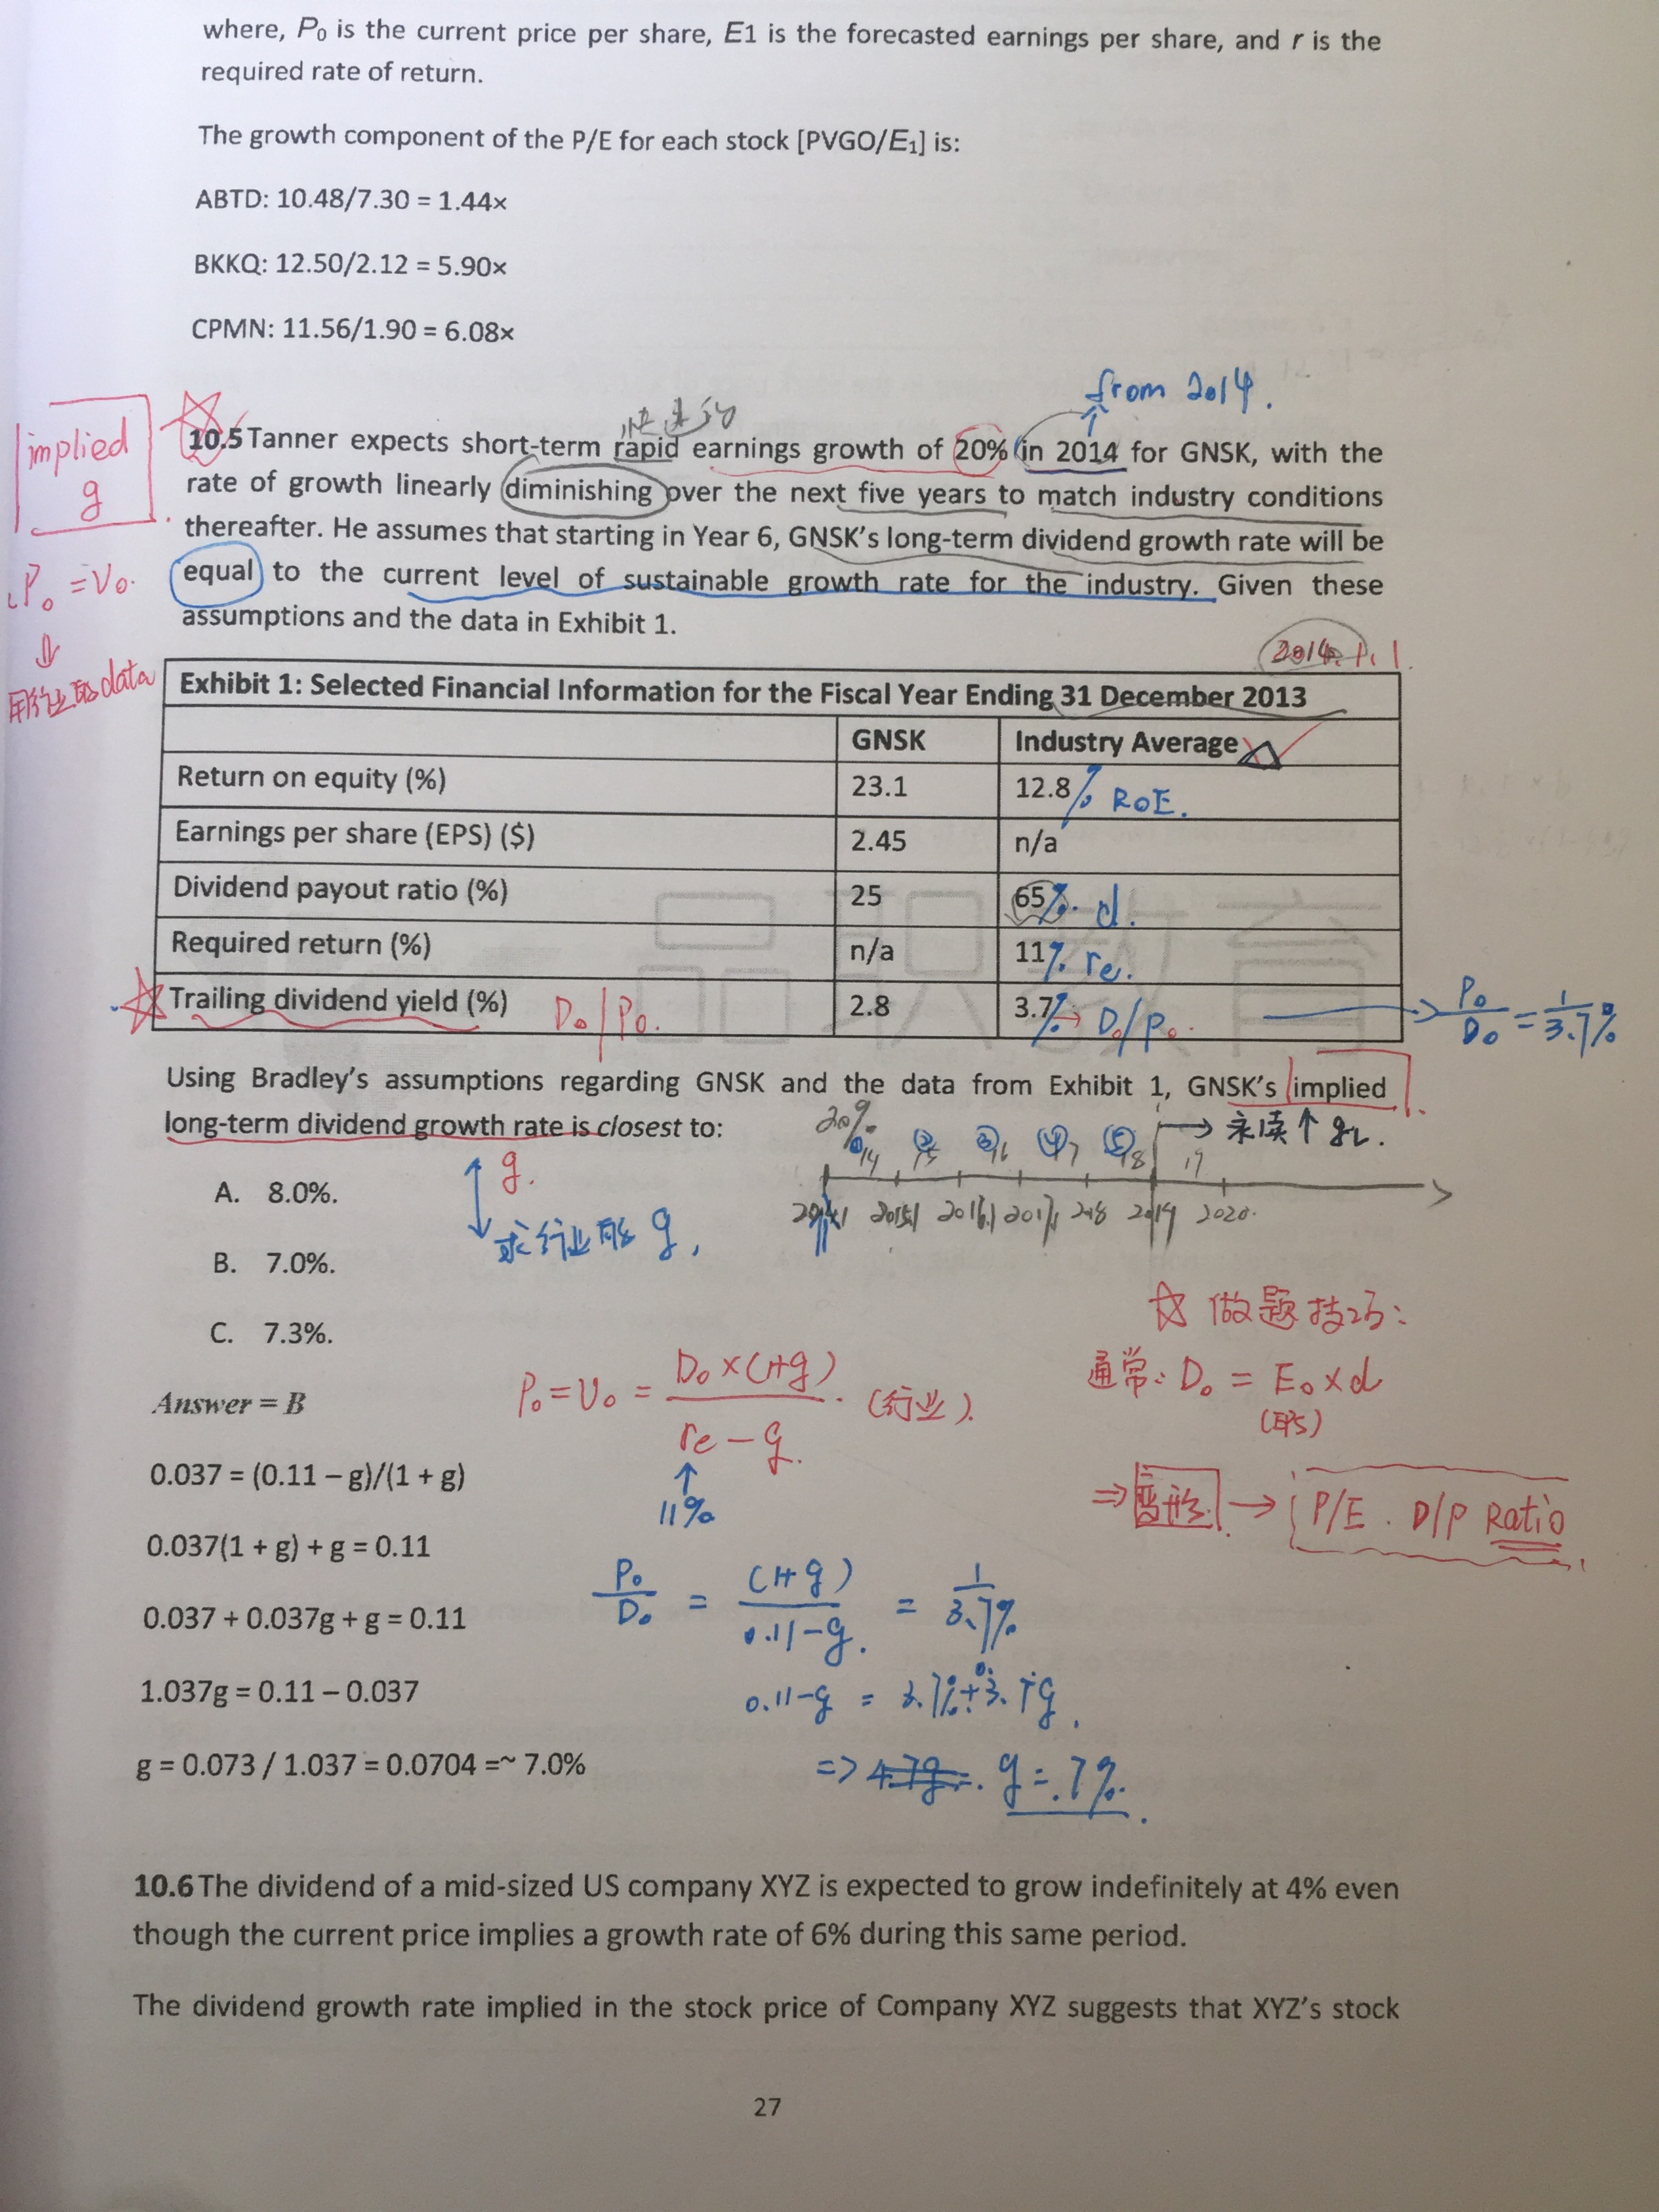 where, P₀ is the current price per share, E1 is the forecasted earnings per share, and r is the
required rate of return.
The growth component of the P/E for each stock [PVGO/E₁] is:
ABTD: 10.48/7.30 = 1.44×
BKKQ: 12.50/2.12 = 5.90×
CPMN: 11.56/1.90 = 6.08×
from 2014.
implied
g
10.5 Tanner expects short-term rapid earnings growth of 20% in 2014 for GNSK, with the
rate of growth linearly diminishing over the next five years to match industry conditions
thereafter. He assumes that starting in Year 6, GNSK's long-term dividend growth rate will be
equal to the current level of sustainable growth rate for the industry. Given these
assumptions and the data in Exhibit 1.
P₀ = V₀.
用行业的data
2014.1.1.
Exhibit 1: Selected Financial Information for the Fiscal Year Ending 31 December 2013
GNSK Industry Average
Return on equity (%) 23.1 12.8% ROE.
Earnings per share (EPS) ($) 2.45 n/a
Dividend payout ratio (%) 25 65%. d.
Required return (%) n/a 11% re.
Trailing dividend yield (%) D₀/P₀. 2.8 3.7% → D₀/P₀. → P₀/D₀ = 1/3.7%
Using Bradley's assumptions regarding GNSK and the data from Exhibit 1, GNSK's implied
long-term dividend growth rate is closest to:
20% ①14 ②15 ③16 ④17 ⑤18 19 → 永续↑ gL.
2018 2019 2020.
g.
求行业的 g,
A. 8.0%.
B. 7.0%.
C. 7.3%.
☆ 做题技巧:
通常: D₀ = E₀ × d
(EPS)
⇒ 变形 → P/E . D/P Ratio
P₀ = V₀ = D₀ × (1+g) / re − g. (行业).
↑
11%
Answer = B
0.037 = (0.11 – g)/(1 + g)
0.037(1 + g) + g = 0.11
0.037 + 0.037g + g = 0.11
1.037g = 0.11 – 0.037
g = 0.073 / 1.037 = 0.0704 =~ 7.0%
P₀/D₀ = (1+g)/0.11−g. = 1/3.7%
=> g = 7%.
10.6 The dividend of a mid-sized US company XYZ is expected to grow indefinitely at 4% even
though the current price implies a growth rate of 6% during this same period.
The dividend growth rate implied in the stock price of Company XYZ suggests that XYZ's stock
27